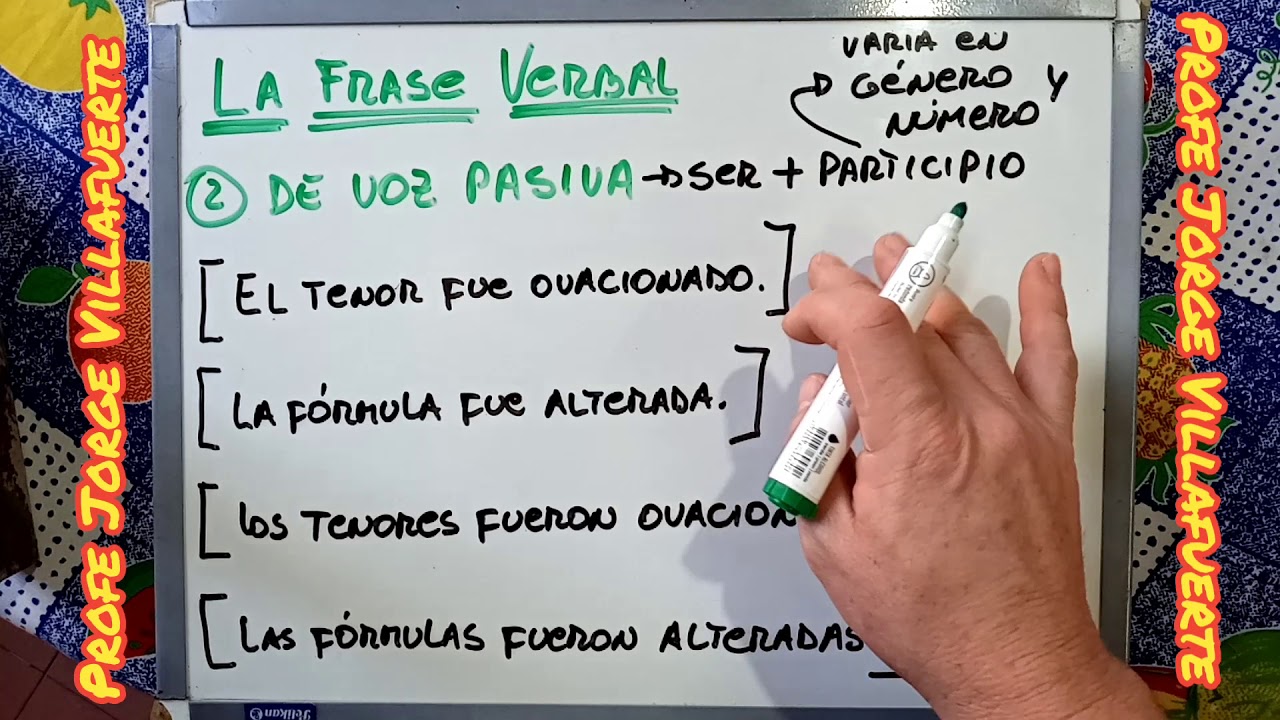 LA FRASE VERBAL
VARIA EN
GÉNERO Y
NÚMERO
② DE VOZ PASIVA → SER + PARTICIPIO
[EL TENOR FUE OVACIONADO.]
[LA FÓRMULA FUE ALTERADA.]
[LOS TENORES FUERON OVACION
[LAS FÓRMULAS FUERON ALTERADAS
PROFE JORGE VILLAFUERTE
PROFE JORGE VILLAFUERTE
Pelikan